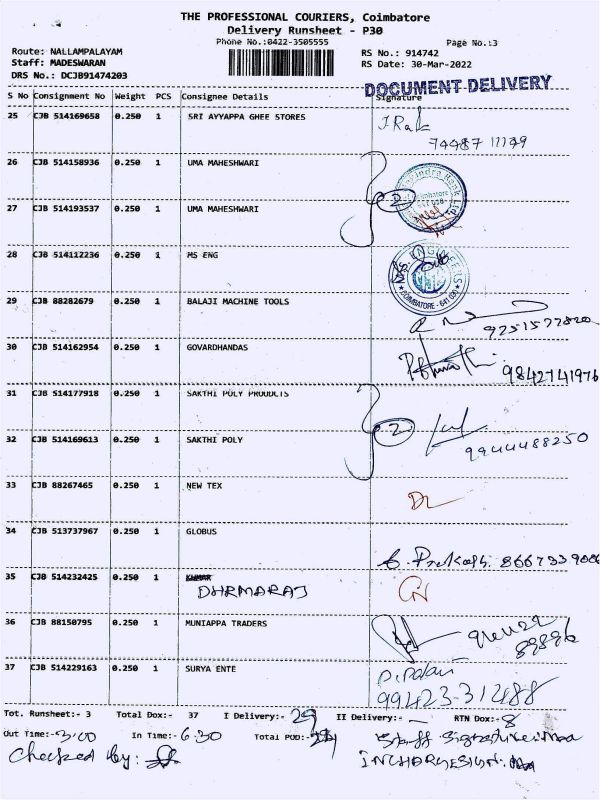 THE PROFESSIONAL COURIERS, Coimbatore
Delivery Runsheet - P30
Phone No.:0422-3505555
Page No.:3
Route: NALLAMPALAYAM
RS No.: 914742
Staff: MADESWARAN
RS Date: 30-Mar-2022
DRS No.: DCJB91474203
DOCUMENT DELIVERY
S No Consignment No Weight PCS Consignee Details Signature
25 CJB 514169658 0.250 1 SRI AYYAPPA GHEE STORES
26 CJB 514158936 0.250 1 UMA MAHESHWARI
27 CJB 514193537 0.250 1 UMA MAHESHWARI
2
28 CJB 514112236 0.250 1 MS ENG
COIMBATORE - 641
29 CJB 88282679 0.250 1 BALAJI MACHINE TOOLS
30 CJB 514162954 0.250 1 GOVARDHANDAS
9842741976
31 CJB 514177918 0.250 1 SAKTHI POLY PRODUCTS
32 CJB 514169613 0.250 1 SAKTHI POLY
2
9944488250
33 CJB 88267465 0.250 1 NEW TEX
34 CJB 513737967 0.250 1 GLOBUS
35 CJB 514232425 0.250 1
DHRMARAJ
36 CJB 88150795 0.250 1 MUNIAPPA TRADERS
37 CJB 514229163 0.250 1 SURYA ENTE
99423-31488
Tot. Runsheet:- 3 Total Dox:- 37 I Delivery:- 29 II Delivery:- — RTN Dox:- 8
Out Time:- 3:00 In Time:- 6:30 Total POD:-
Checked by: